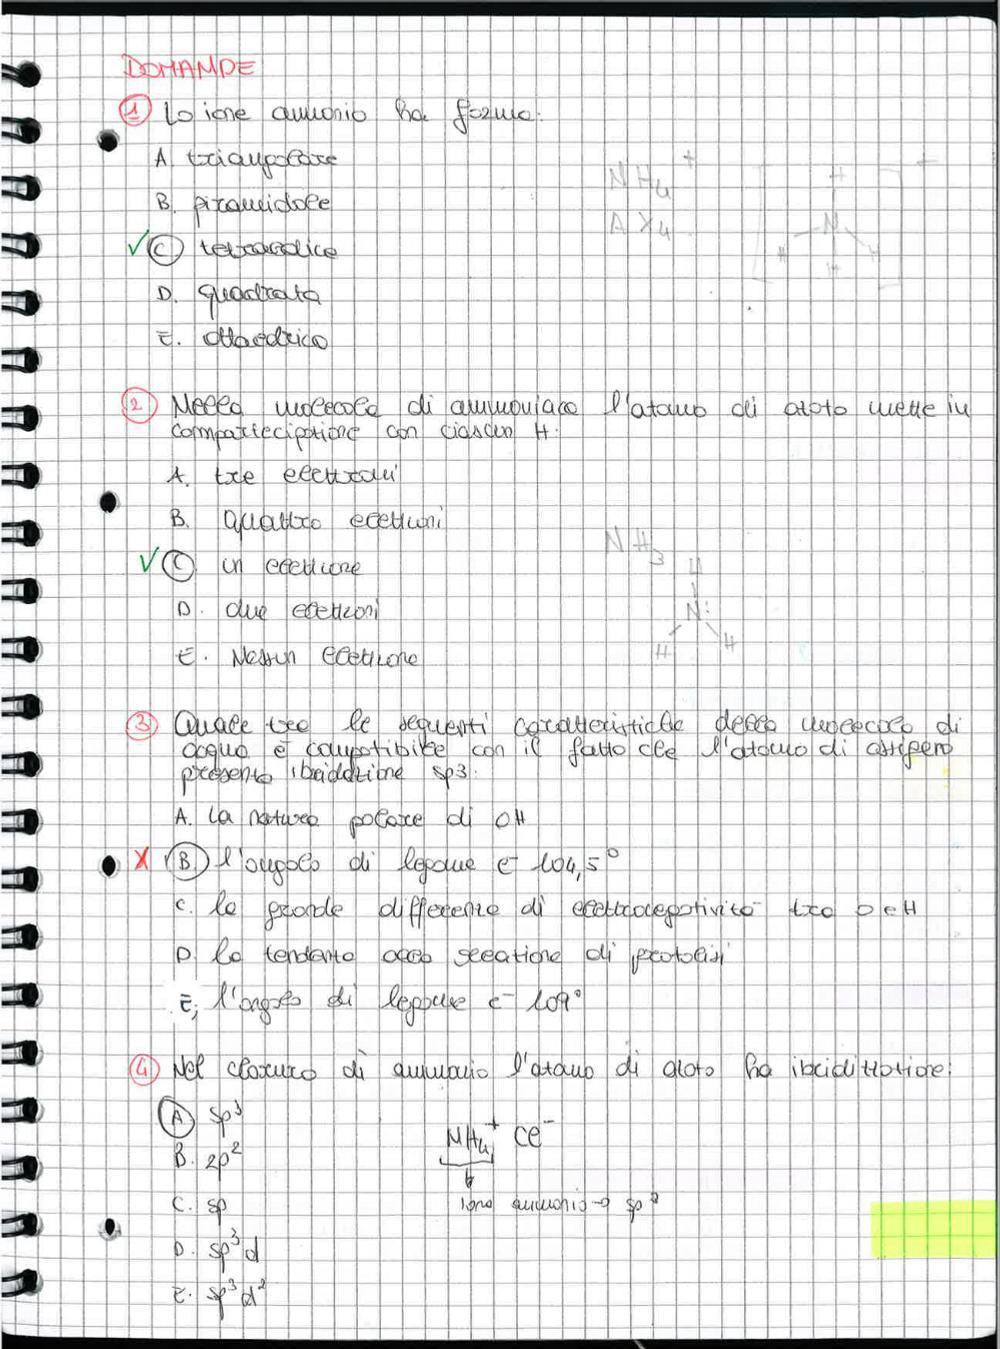 DOMANDE
1 Lo ione ammonio ha forma:
NH4+
A. triangolare
B. piramidale
AX4
[H N H H H]+
✓ C tetraedrica
D. quadrata
E. ottaedrica
2 Nella molecola di ammoniaca l'atomo di azoto mette in
compartecipazione con ciascun H:
A. tre elettroni
B. quattro elettroni
NH3
✓ C. un elettrone
H
D. due elettroni
N:
H H
E. Nessun elettrone
3 Quale tra le seguenti caratteristiche della molecola di
acqua è compatibile con il fatto che l'atomo di ossigeno
presenta ibridazione sp3:
A. la natura polare di OH
X B. l'angolo di legame è 104,5°
C. la grande differenza di elettronegatività tra O e H
D. la tendenza alla reazione di protolisi
E. l'angolo di legame è 109°
4 Nel cloruro di ammonio l'atomo di azoto ha ibridizzazione:
A sp³
NH4+ Cl-
B. sp²
C. sp
ione ammonio → sp³
D. sp³d
E. sp³d²